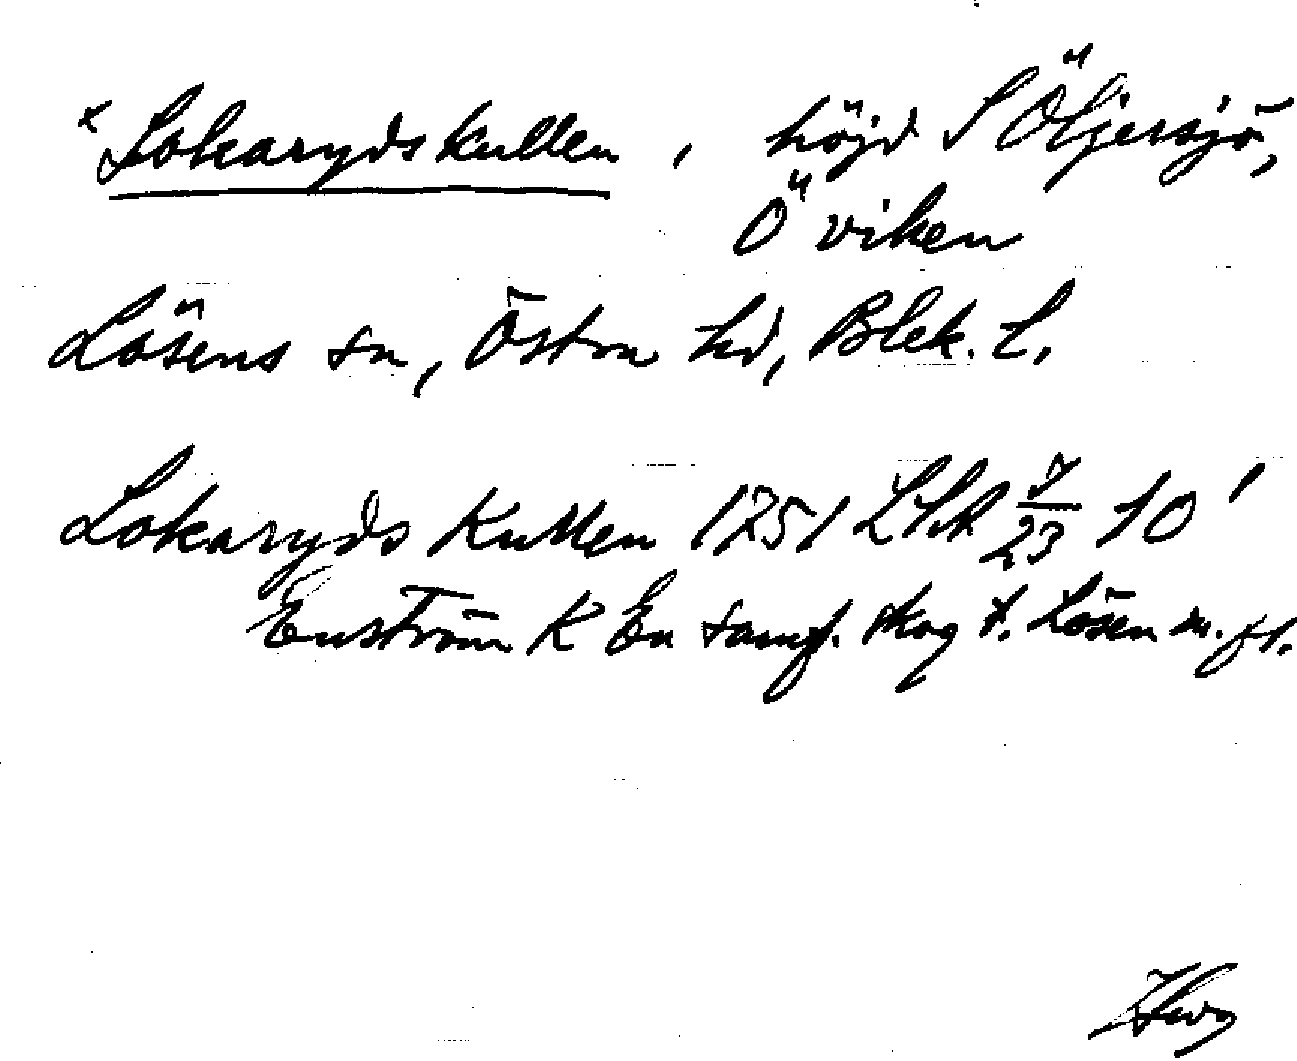 × Lokarydskullen, höjd S Öljersjö,
Ö viken
Lösens sn, Östra hd, Blek. l.
Lokaryds Kullen 1751 LSA 7/23 10'
Enström K En saml. skog t. Lösen m. fl.